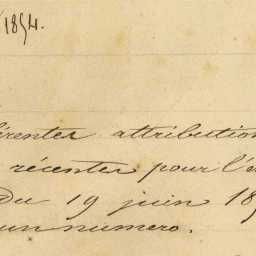 /1894.
férentes attribution
récentes pour l'é
Du 19 juin 18
un numero.